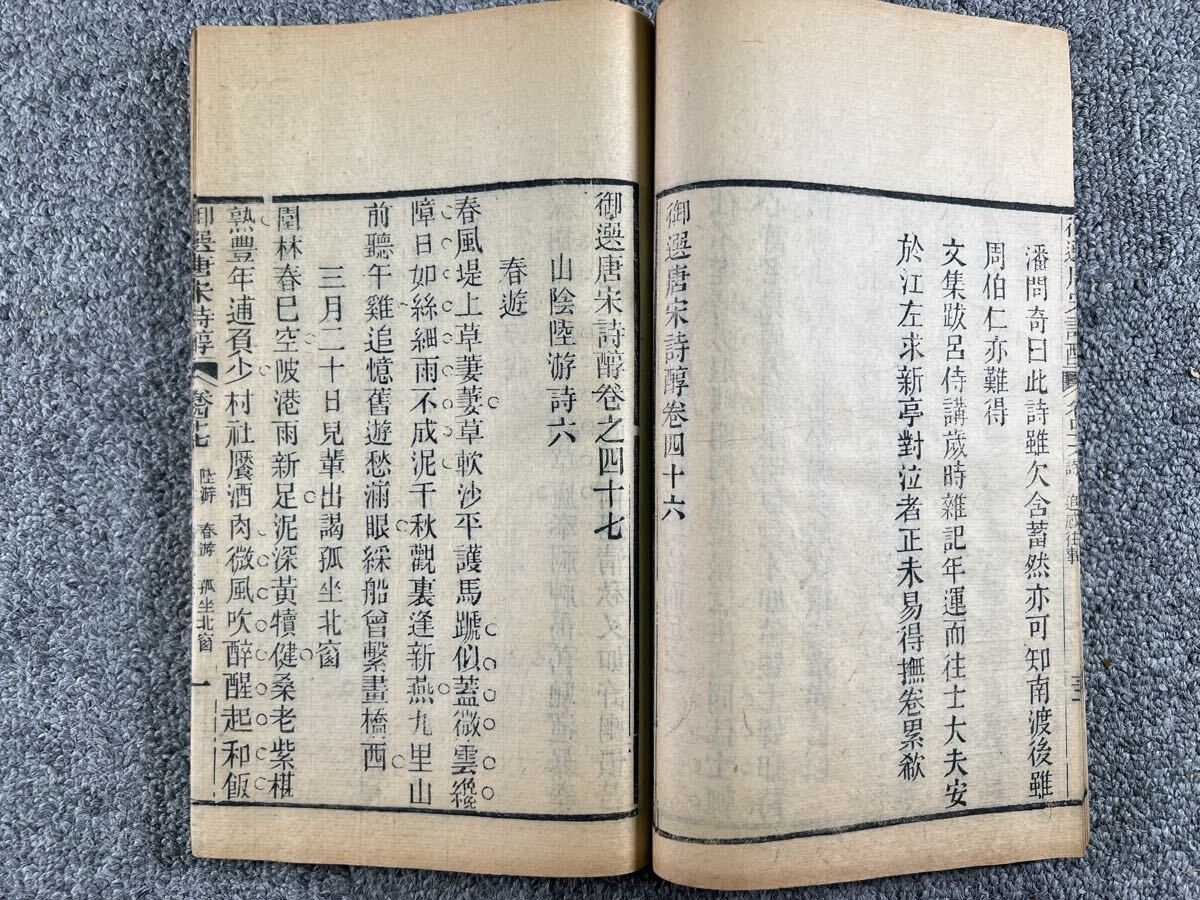 潘問奇曰此詩雖欠含蓄然亦可知南渡後雖
周伯仁亦難得
文集跋呂侍講歲時雜記年運而往士大夫安
於江左求新亭對泣者正未易得撫卷累欷
御選唐宋詩醇卷四十六
御選唐宋詩醇卷之四十七
山陰陸游詩六
春遊
春風堤上草萋萋草軟沙平護馬蹏似蓋微雲纔
障日如絲細雨不成泥千秋觀裏逢新燕九里山
前聽午雞追憶舊遊愁滿眼綵船曾繫畫橋西
三月二十日兒輩出謁孤坐北窗
園林春巳空陂港雨新足泥深黃犢健桑老紫椹
熟豐年逋負少村社饜酒肉微風吹醉醒起和飯
御選唐宋詩醇 陸游 春游 孤坐北窗 一